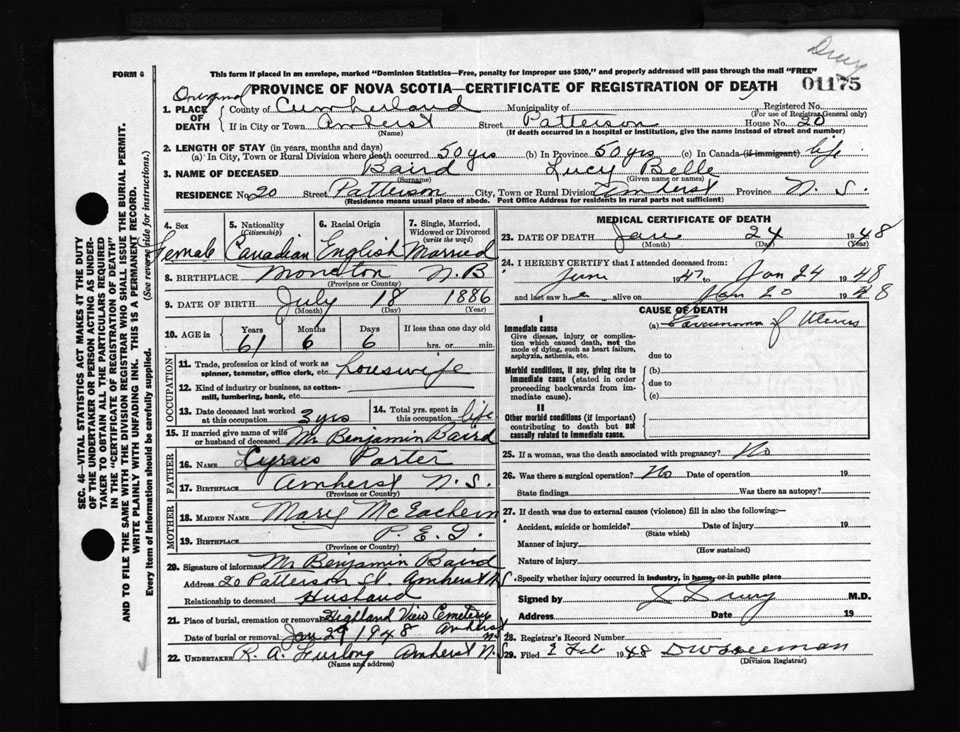 Drury
FORM 6
This form if placed in an envelope, marked "Dominion Statistics—Free, penalty for improper use $300," and properly addressed will pass through the mail "FREE"
01175
PROVINCE OF NOVA SCOTIA—CERTIFICATE OF REGISTRATION OF DEATH
Original
1. PLACE OF DEATH { County of Cumberland Municipality of Registered No.
(For use of Registrar General only)
If in City or Town Amherst Street Patterson House No. 20
(Name) (If death occurred in a hospital or institution, give the name instead of street and number)
2. LENGTH OF STAY (in years, months and days)
(a) In City, Town or Rural Division where death occurred 50 yrs (b) In Province 50 yrs (c) In Canada (if immigrant) life
3. NAME OF DECEASED Baird Lucy Belle
(Surname) (Given name or names)
RESIDENCE No. 20 Street Patterson City, Town or Rural Division Amherst Province N. S.
(Residence means usual place of abode. Post Office Address for residents in rural parts not sufficient)
4. Sex 5. Nationality (Citizenship) 6. Racial Origin 7. Single, Married, Widowed or Divorced (write the word)
Female Canadian English Married
8. BIRTHPLACE Moncton N.B
(Province or Country)
9. DATE OF BIRTH July 18 1886
(Month) (Day) (Year)
10. AGE in { Years Months Days If less than one day old
61 6 6 hrs. or min.
OCCUPATION
11. Trade, profession or kind of work as spinner, teamster, office clerk, etc. housewife
12. Kind of industry or business, as cotton-mill, lumbering, bank, etc.
13. Date deceased last worked at this occupation 3 yrs 14. Total yrs. spent in this occupation life
15. If married give name of wife or husband of deceased Mr Benjamin Baird
FATHER
16. NAME Porter
17. BIRTHPLACE Amherst N. S.
(Province or Country)
MOTHER
18. MAIDEN NAME Mary McEachern
19. BIRTHPLACE P. E. I.
(Province or Country)
20. Signature of informant Mr Benjamin Baird
Address 20 Patterson St. Amherst N S.
Relationship to deceased Husband
21. Place of burial, cremation or removal Highland View Cemetery
Date of burial or removal Jan 29 1948 Amherst N.S
22. UNDERTAKER R. A. Furlong Amherst N. S
(Name and address)
MEDICAL CERTIFICATE OF DEATH
23. DATE OF DEATH Jan 24 1948
(Month) (Day) (Year)
24. I HEREBY CERTIFY that I attended deceased from:
June 1947 to Jan 24 1948
and last saw h er alive on Jan 20 1948
CAUSE OF DEATH
I
Immediate cause (a) Carcinoma of Uterus
Give disease, injury or complication which caused death, not the mode of dying, such as heart failure, asphyxia, asthenia, etc.
due to
Morbid conditions, if any, giving rise to immediate cause (stated in order proceeding backwards from immediate cause).
(b)
due to
(c)
II
Other morbid conditions (if important) contributing to death but not causally related to immediate cause.
25. If a woman, was the death associated with pregnancy? No
26. Was there a surgical operation? No Date of operation 19
State findings Was there an autopsy?
27. If death was due to external causes (violence) fill in also the following:—
Accident, suicide or homicide? Date of injury 19
(State which)
Manner of injury
(How sustained)
Nature of injury
Specify whether injury occurred in industry, in home, or in public place
Signed by Drury M.D.
Address Date 19
28. Registrar's Record Number
29. Filed 2 Feb 1948
(Division Registrar)
SEC. 46—VITAL STATISTICS ACT MAKES IT THE DUTY
OF THE UNDERTAKER OR PERSON ACTING AS UNDER-
TAKER TO OBTAIN ALL THE PARTICULARS REQUIRED
IN THE "CERTIFICATE OF REGISTRATION OF DEATH"
AND TO FILE THE SAME WITH THE DIVISION REGISTRAR WHO SHALL ISSUE THE BURIAL PERMIT.
WRITE PLAINLY WITH UNFADING INK. THIS IS A PERMANENT RECORD.
Every item of information should be carefully supplied. (See reverse side for instructions.)